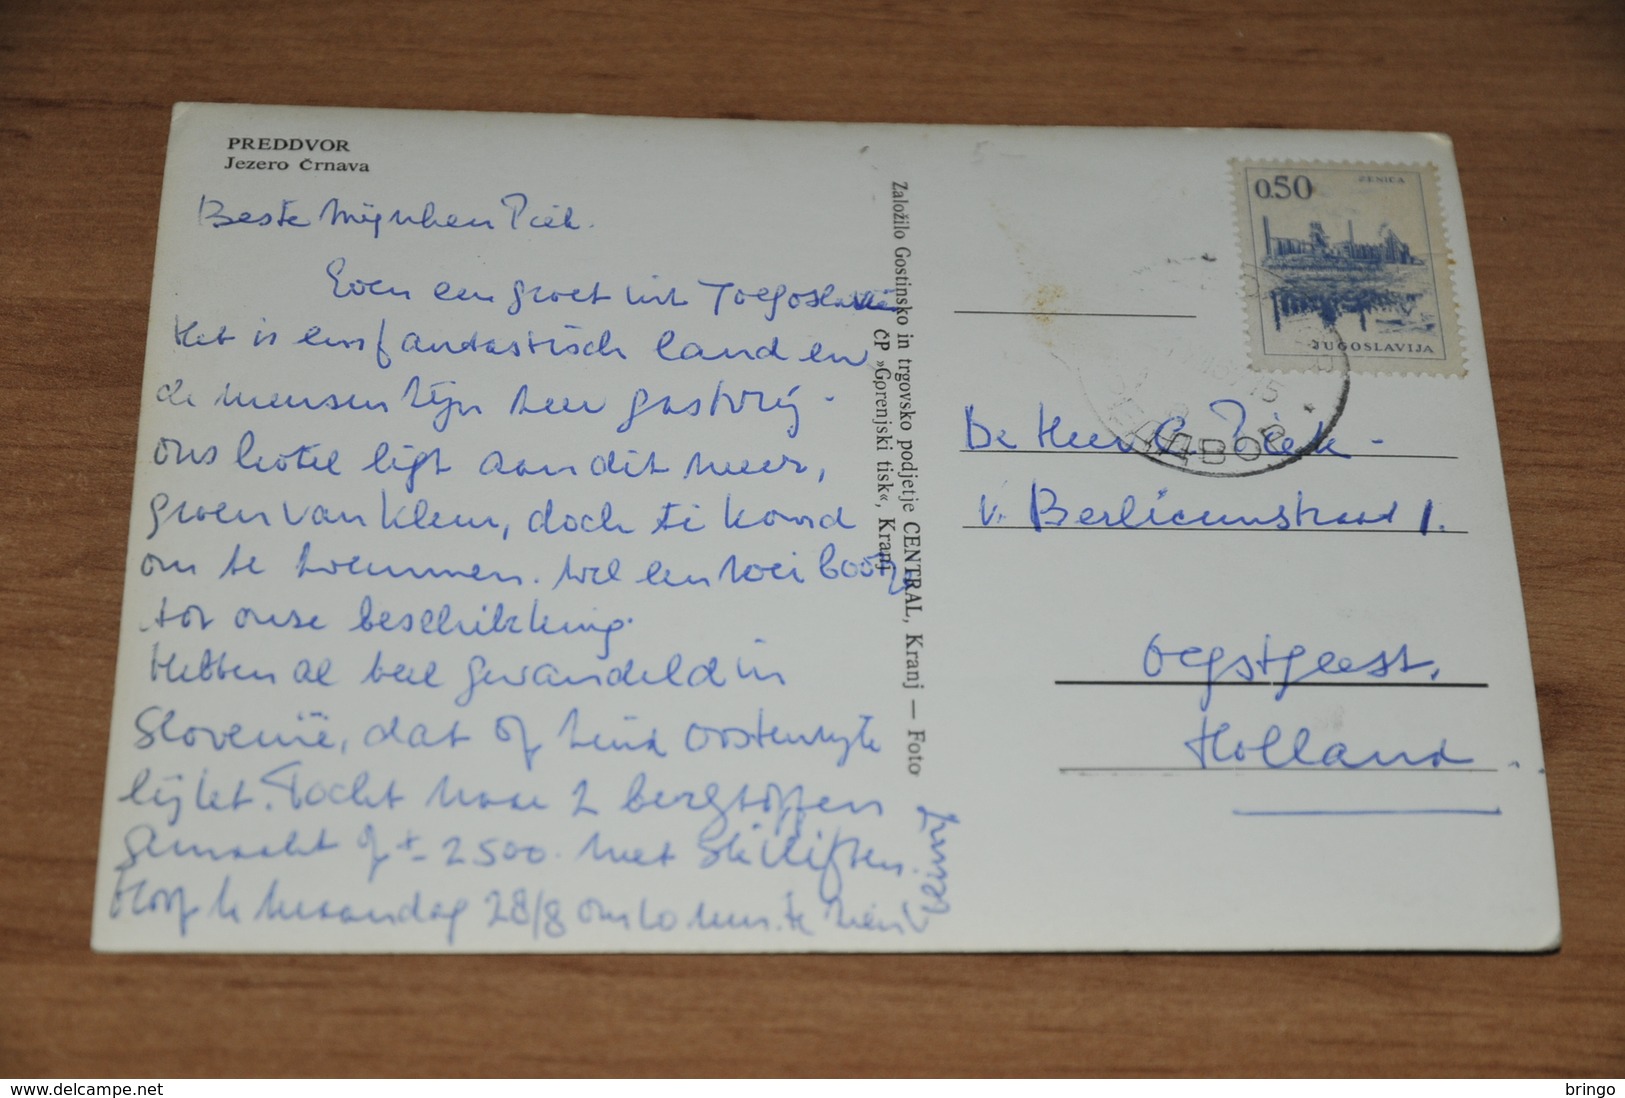 PREDDVOR
Jezero Črnava
Beste Mijnheer Piek.
Even een groet uit Joegoslavië
Het is een fantastisch land en
de mensen zijn zeer gastvrij.
ons hotel ligt aan dit meer,
groen van kleur, doch te koud
om te zwemmen. Wel een roei bootje
tot onze beschikking.
Hebben al veel gewandeld in
Slovenië, dat op Zuid Oostenrijk
lijket. Tocht naar 2 bergtoppen
gemaakt op ± 2500. met Skiliften.
Hoop U maandag 28/8 om 10 uur te zien
Založilo Gostinsko in trgovsko podjetje CENTRAL, Kranj — Foto
ČP »Gorenjski tisk«, Kranj
0.50
ZENICA
JUGOSLAVIJA
ПРЕДДВОР
De Heer C. Piek -
v. Berlicumstraat 1.
Oegstgeest.
Holland.
delcampe.net
bringo